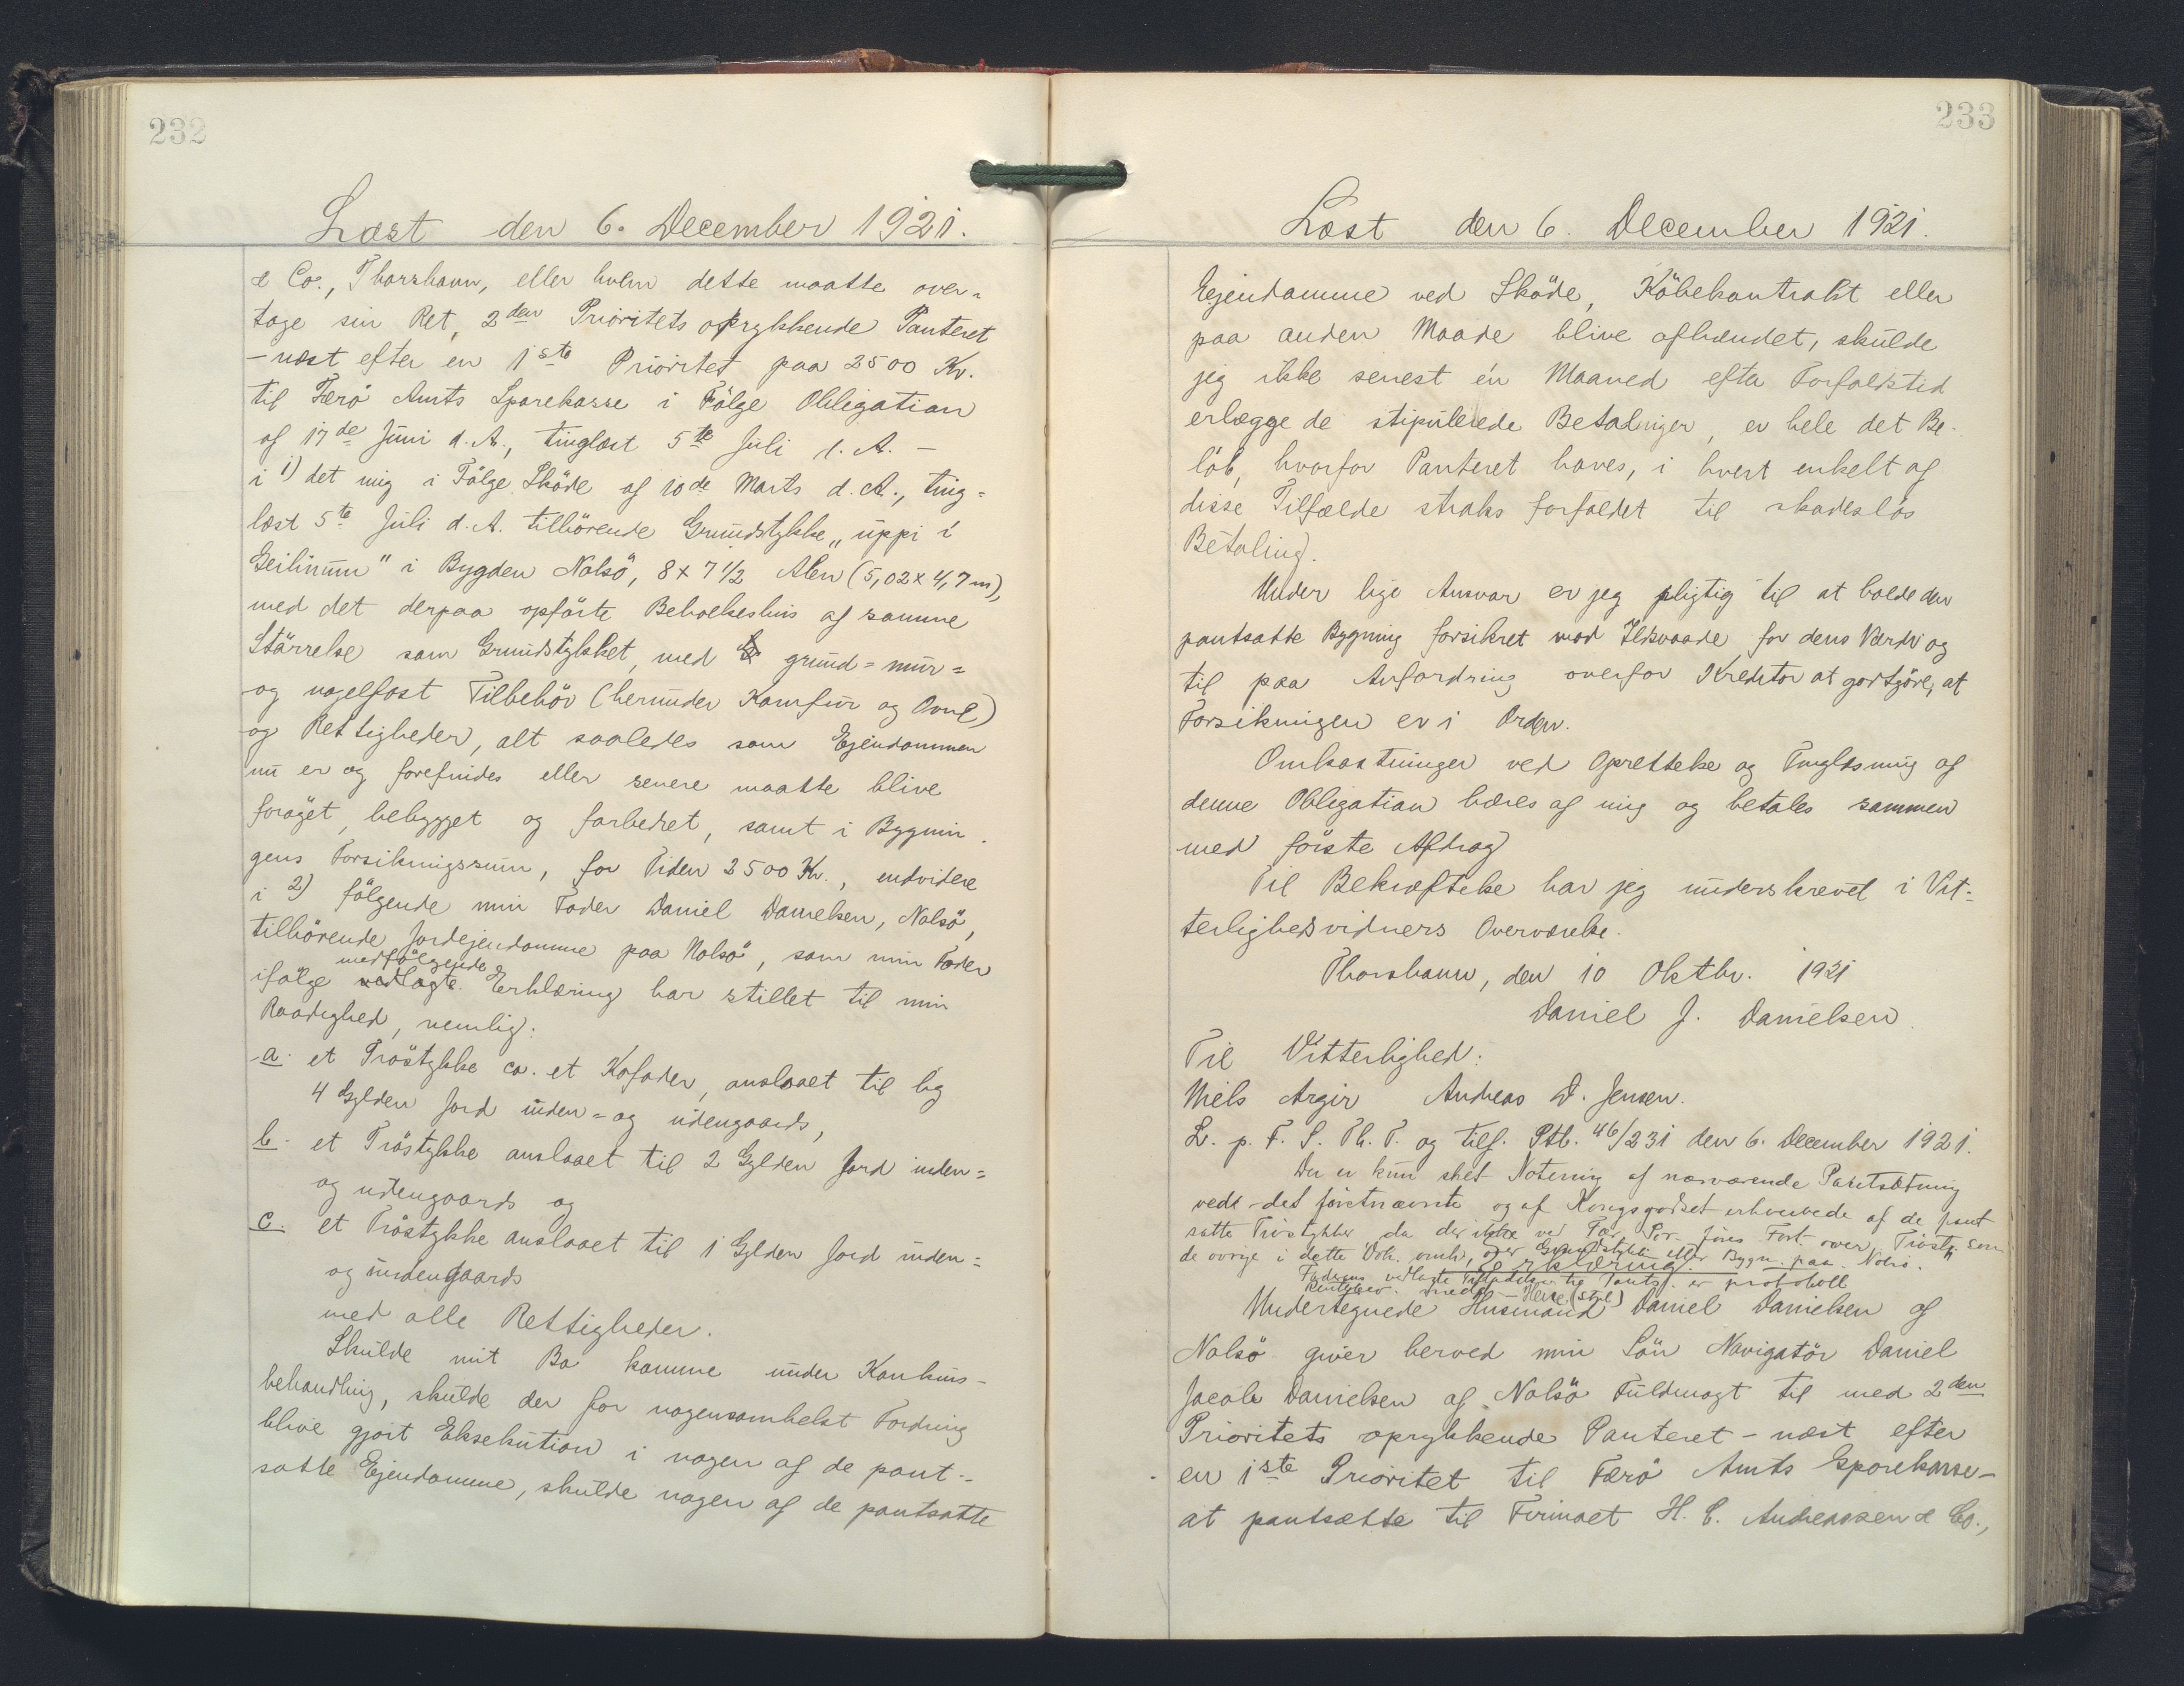 232
Læst den 6. December 1921.
& Co., Thorshavn, eller hvem dette maatte over-
tage sin Ret, 2den Prioritets oprykkende Panteret
- næst efter en 1ste Prioritet paa 2500 Kr.
til Færö Amts Sparekasse i Fölge Obligation
af 17de Juni d. A., tinglæst 5te Juli d. A. -
i 1) det mig i Fölge Sköde af 10de Marts d. A., ting-
læst 5te Juli d. A. tilhörende Grundstykke "uppi i
Geilinum" i Bygden Nolsö, 8 x 7 1/2 Alen (5,02 x 4,7 m),
med det derpaa opförte Beboelseshus af samme
Störrelse som Grundstykket, med grund- mur-
og nagelfast Tilbehör (herunder Komfur og Ovne)
og Rettigheder, alt saaledes som Ejendommen
nu er og forefindes eller senere maatte blive
foröget, bebygget og forbedret, samt i Bygnin-
gens Forsikringssum, for Tiden 2500 Kr., endvidere
i 2) fölgende min Fader Daniel Danielsen, Nolsö,
tilhörende Jordejendomme paa Nolsö, som min Fader
medfölgende
ifölge vedlagte Erklæring har stillet til min
Raadighed, nemlig:
a. et Tröstykke ca. et Kofoder, anslaaet til lig
4 Gylden Jord inden- og udengaards,
b. et Tröstykke anslaaet til 2 Gylden Jord inden-
og udengaards og
c. et Tröstykke anslaaet til 1 Gylden Jord inden-
og udengaards
med alle Rettigheder.
Skulde mit Bo komme under Konkurs-
behandling, skulde der for nogensomhelst Fordring
blive gjort Eksekution i nogen af de pant-
satte Ejendomme, skulde nogen af de pantsatte
233
Læst den 6. December 1921.
Ejendomme ved Sköde, Köbekontrakt eller
paa anden Maade blive afhændet, skulde
jeg ikke senest én Maaned efter Forfaldstid
erlægge de stipulerede Betalinger, er hele det Be-
löb, hvorfor Panteret haves, i hvert enkelt af
disse Tilfælde straks forfaldet til skadeslös
Betaling.
Under lige Ansvar er jeg pligtig til at holde den
pantsatte Bygning forsikret mod Ildsvaade for dens Værdi og
til paa Anfordring overfor Kreditor at godtgöre, at
Forsikringen er i Orden.
Omkostninger ved Oprettelse og Tinglæsning af
denne Obligation bæres af mig og betales sammen
med förste Afdrag
Til Bekræftelse har jeg underskrevet i Vit-
terlighedsvidners Overværelse.
Thorshavn, den 10 Oktbr. 1921
Daniel J. Danielsen
Til Vitterlighed:
Niels Argir Andreas D. Jensen.
L. p. F. S. Th. T. og tilf. Ptb. 46/231 den 6. December 1921.
Der er kun sket Notering af nærværende Pantsætning
vedr. det förstnævnte og af Kongsgodset erhvervede af de pant
satte Tröstykker, da der ikke ved Fær. Pr. föres Fort. over Tröstk. som
de övrige i dette Dok. omh., eller Grundstykke eller Bygn. paa Nolsö.
Erklæring.
Faderens vedlagte Tilladelse til Pants. er protokoll
Undertegnede Husmand Daniel Danielsen af
Nolsö giver herved min Sön Navigatör Daniel
Jacob Danielsen af Nolsö Fuldmagt til med 2den
Prioritets oprykkende Panteret - næst efter
en 1ste Prioritet til Færö Amts Sparekasse -
at pantsætte til Firmaet H. C. Andreassen & Co.,